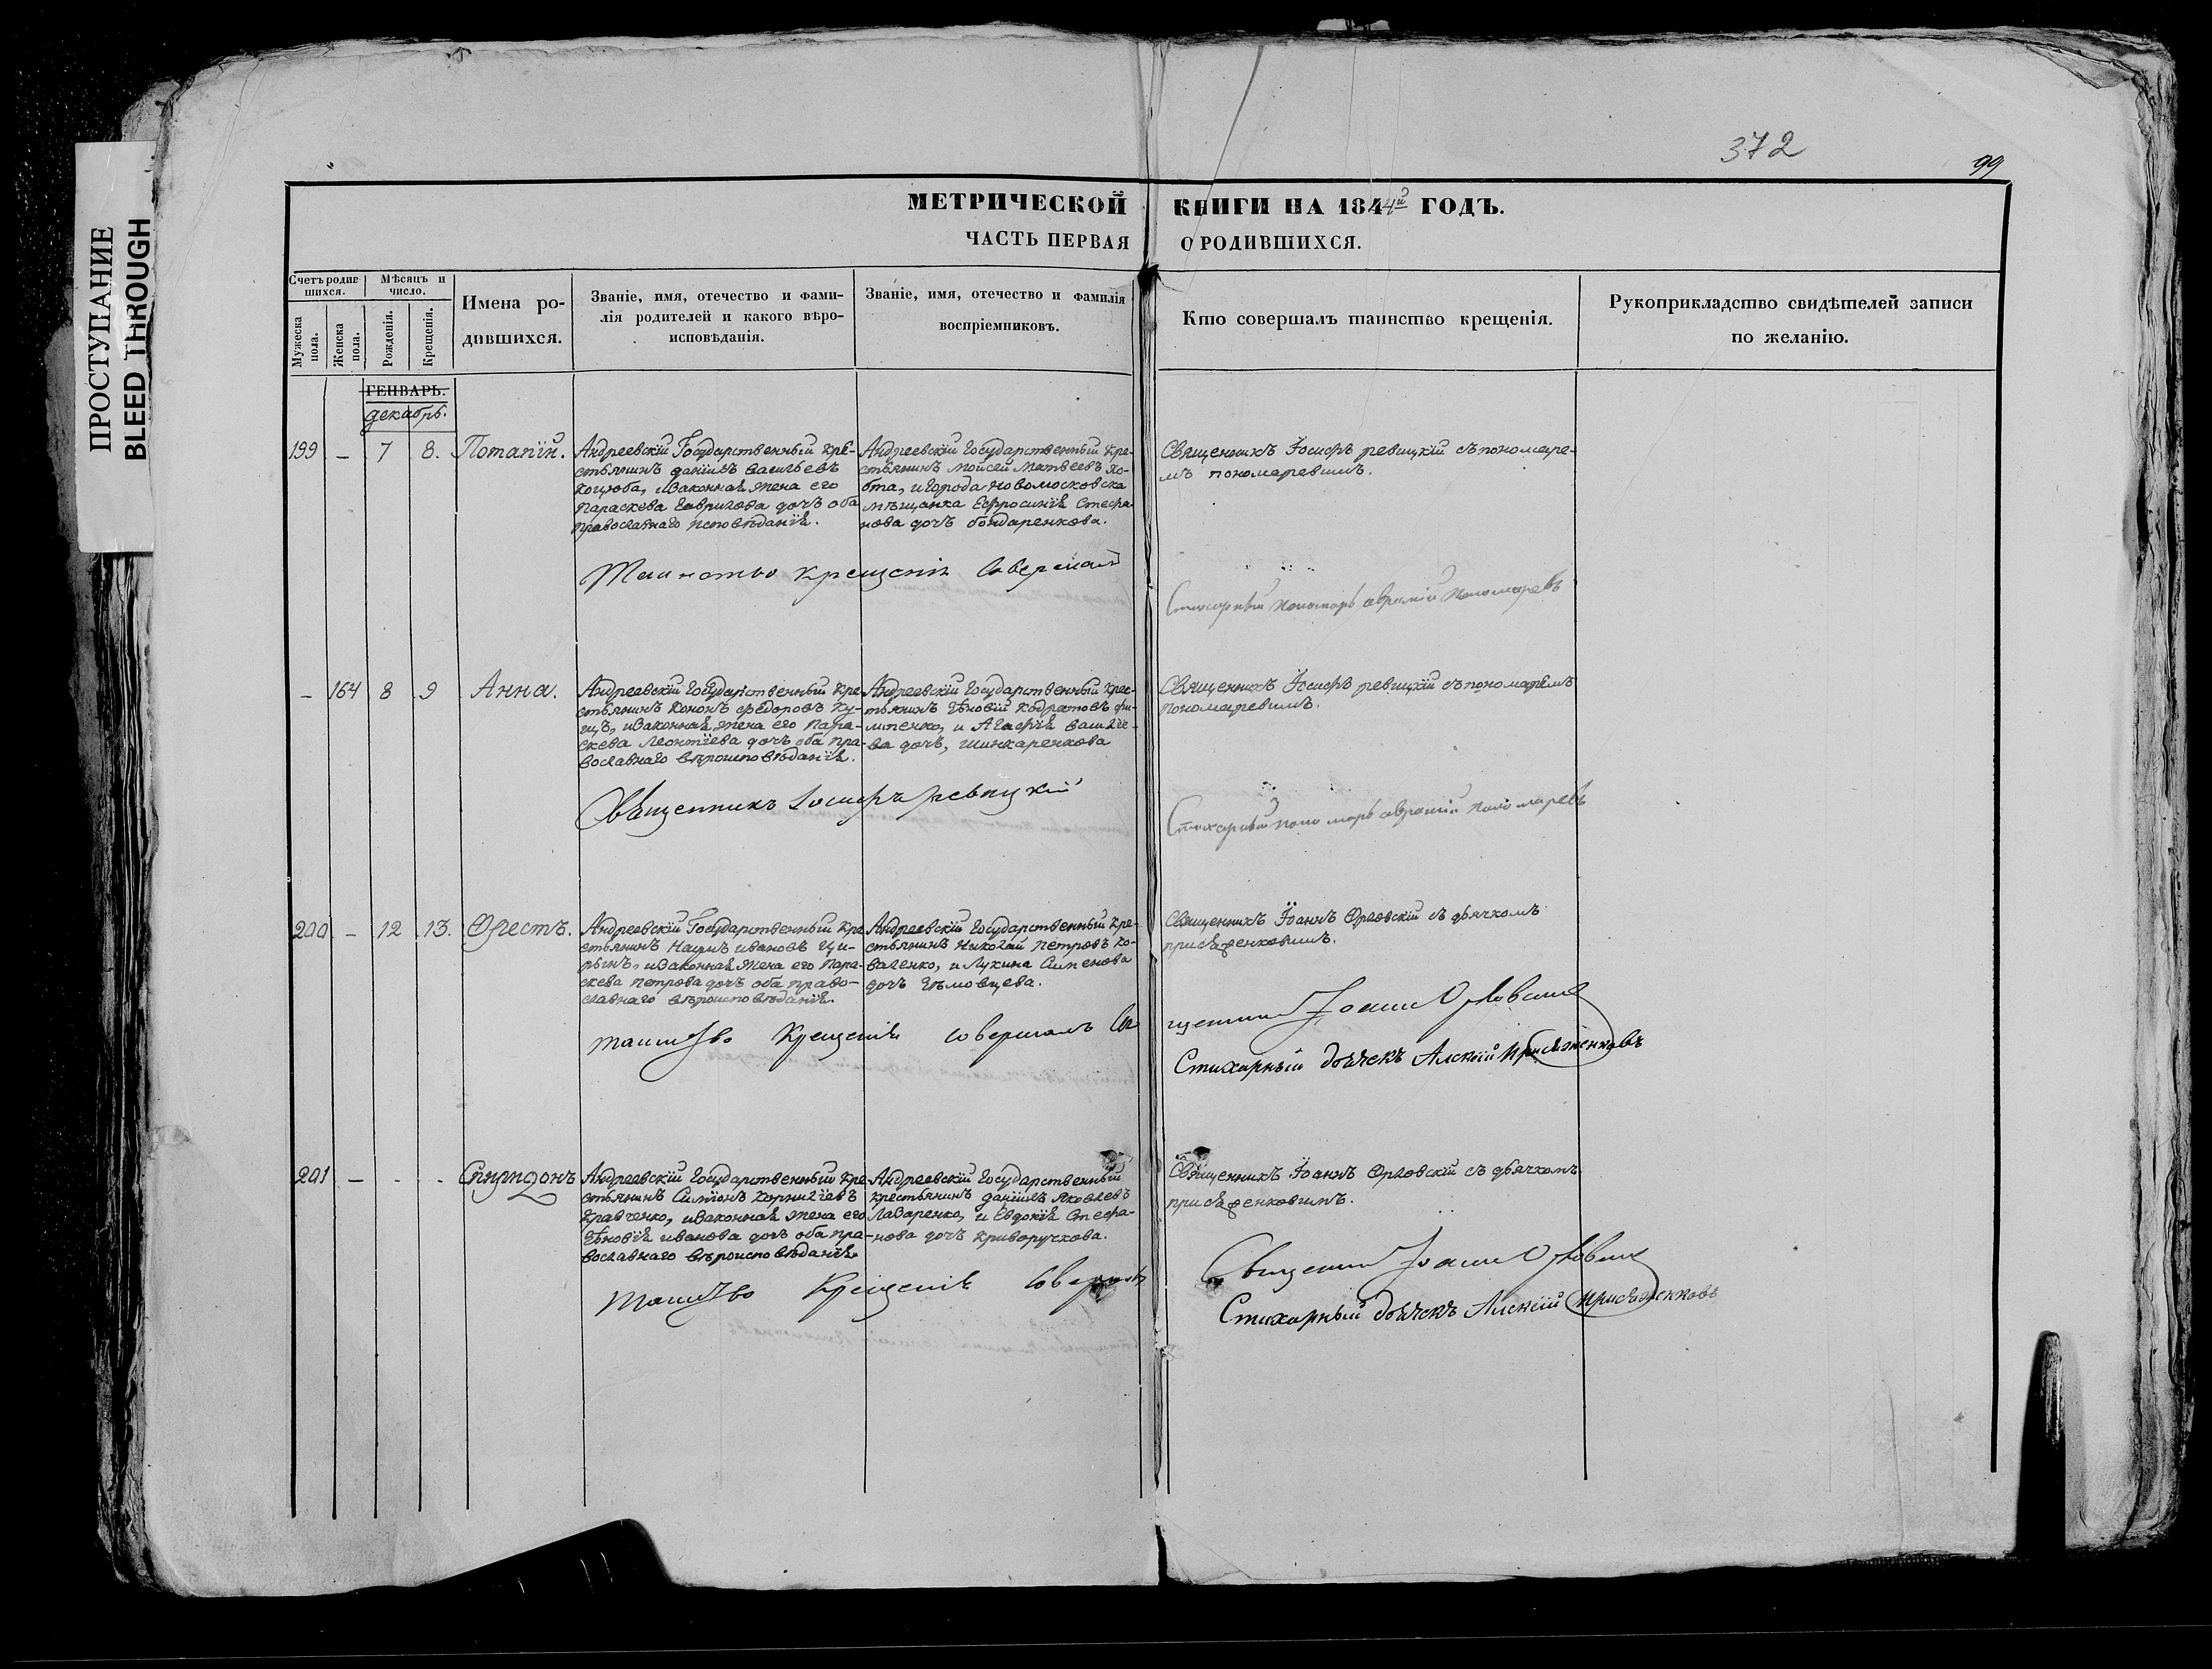 ПРОСТУПАНИЕ
BLEED THROUGH
372
99
МЕТРИЧЕСКОЙ КНИГИ НА 1844й ГОДЪ.
ЧАСТЬ ПЕРВАЯ О РОДИВШИХСЯ.
Счетъ родив-
шихся.
Мужеска
пола.
Женска
пола.
Мѣсяцъ и
число.
Рожденія.
Крещенія.
Имена ро-
дившихся.
Званіе, имя, отечество и фами-
лія родителей и какого вѣро-
исповѣданія.
Званіе, имя, отечество и фамилія
воспріемниковъ.
Кто совершалъ таинство крещенія.
Рукоприкладство свидѣтелей записи
по желанію.
ГЕНВАРЬ.
декабрь.
199 – 7 8. Потапій.
Андреевскій Государственный кре-
стьянинъ даніилъ васильевъ
коцюба, и законная жена его
Параскева Гаврилова дочъ оба
православнаго исповѣданія.
Андреевскій Государственный кре-
стьянинъ Мойсей Матвеевъ хо-
бта, и города Новомосковска
мѣщанка Ефросинія Стефа-
нова дочъ бондаренкова.
Священникъ Іосифъ ревицкій съ пономаре-
мъ пономаревимъ.
Таинство крещенія Совершалъ
Стихарный пономарь аврамій Пономаревъ
– 164 8 9 Анна.
Андреевскій Государственный кре-
стьянинъ Кононъ федоровъ Ку-
цъ, и законная жена его Пара-
скева Леонтіева дочъ оба пра-
вославнаго вѣроисповѣданія.
Андреевскій Государственный крес-
тьянинъ Зѣновій Кодратовъ фи-
липенко, и Агафія василіе-
ва дочъ, шинкаренкова
Священникъ Іосифъ ревицкій съ пономарѣмъ
пономаревимъ.
Священникъ Іосифъ ревицкій
Стихарный пономарь аврамій пономаревъ
200 – 12 13. Орестъ.
Андреевскій Государственный кре-
стьянинъ Наумъ ивановъ Ци-
рынъ, и законная жена его Пара-
скева петрова дочъ оба право-
славнаго вѣроисповѣданія.
Андреевскій Государственный кре-
стьянинъ Николай петровъ ко-
валенко, и Лукина Сименова
дочъ
Священникъ Іоаннъ Орловскій съ дьячкомъ
присяженковимъ.
таинство Крещенія совершалъ Свя
щенникъ Іоаннъ Орловскій
Стихарный дьячекъ Алексій Присяженковъ
201 – . . Спиридонъ
Андреевскій Государственный кре-
стьянинъ Симіонъ Корниліевъ
Кравченко, и законная жена его
Зѣновія иванова дочъ оба пра-
вославнаго вѣроисповѣданія.
Андреевскій Государственный
крестьянинъ даніилъ Яковлевъ
Лазаренко, и Евдокія Стефа-
нова дочъ Криворучкова.
Священникъ Іоаннъ Орловскій съ дьячкомъ
присяженковимъ.
таинство Крещенія Совершалъ
Священникъ Іоаннъ Орловскій
Стихарный дьячекъ Алексій Присяженковъ